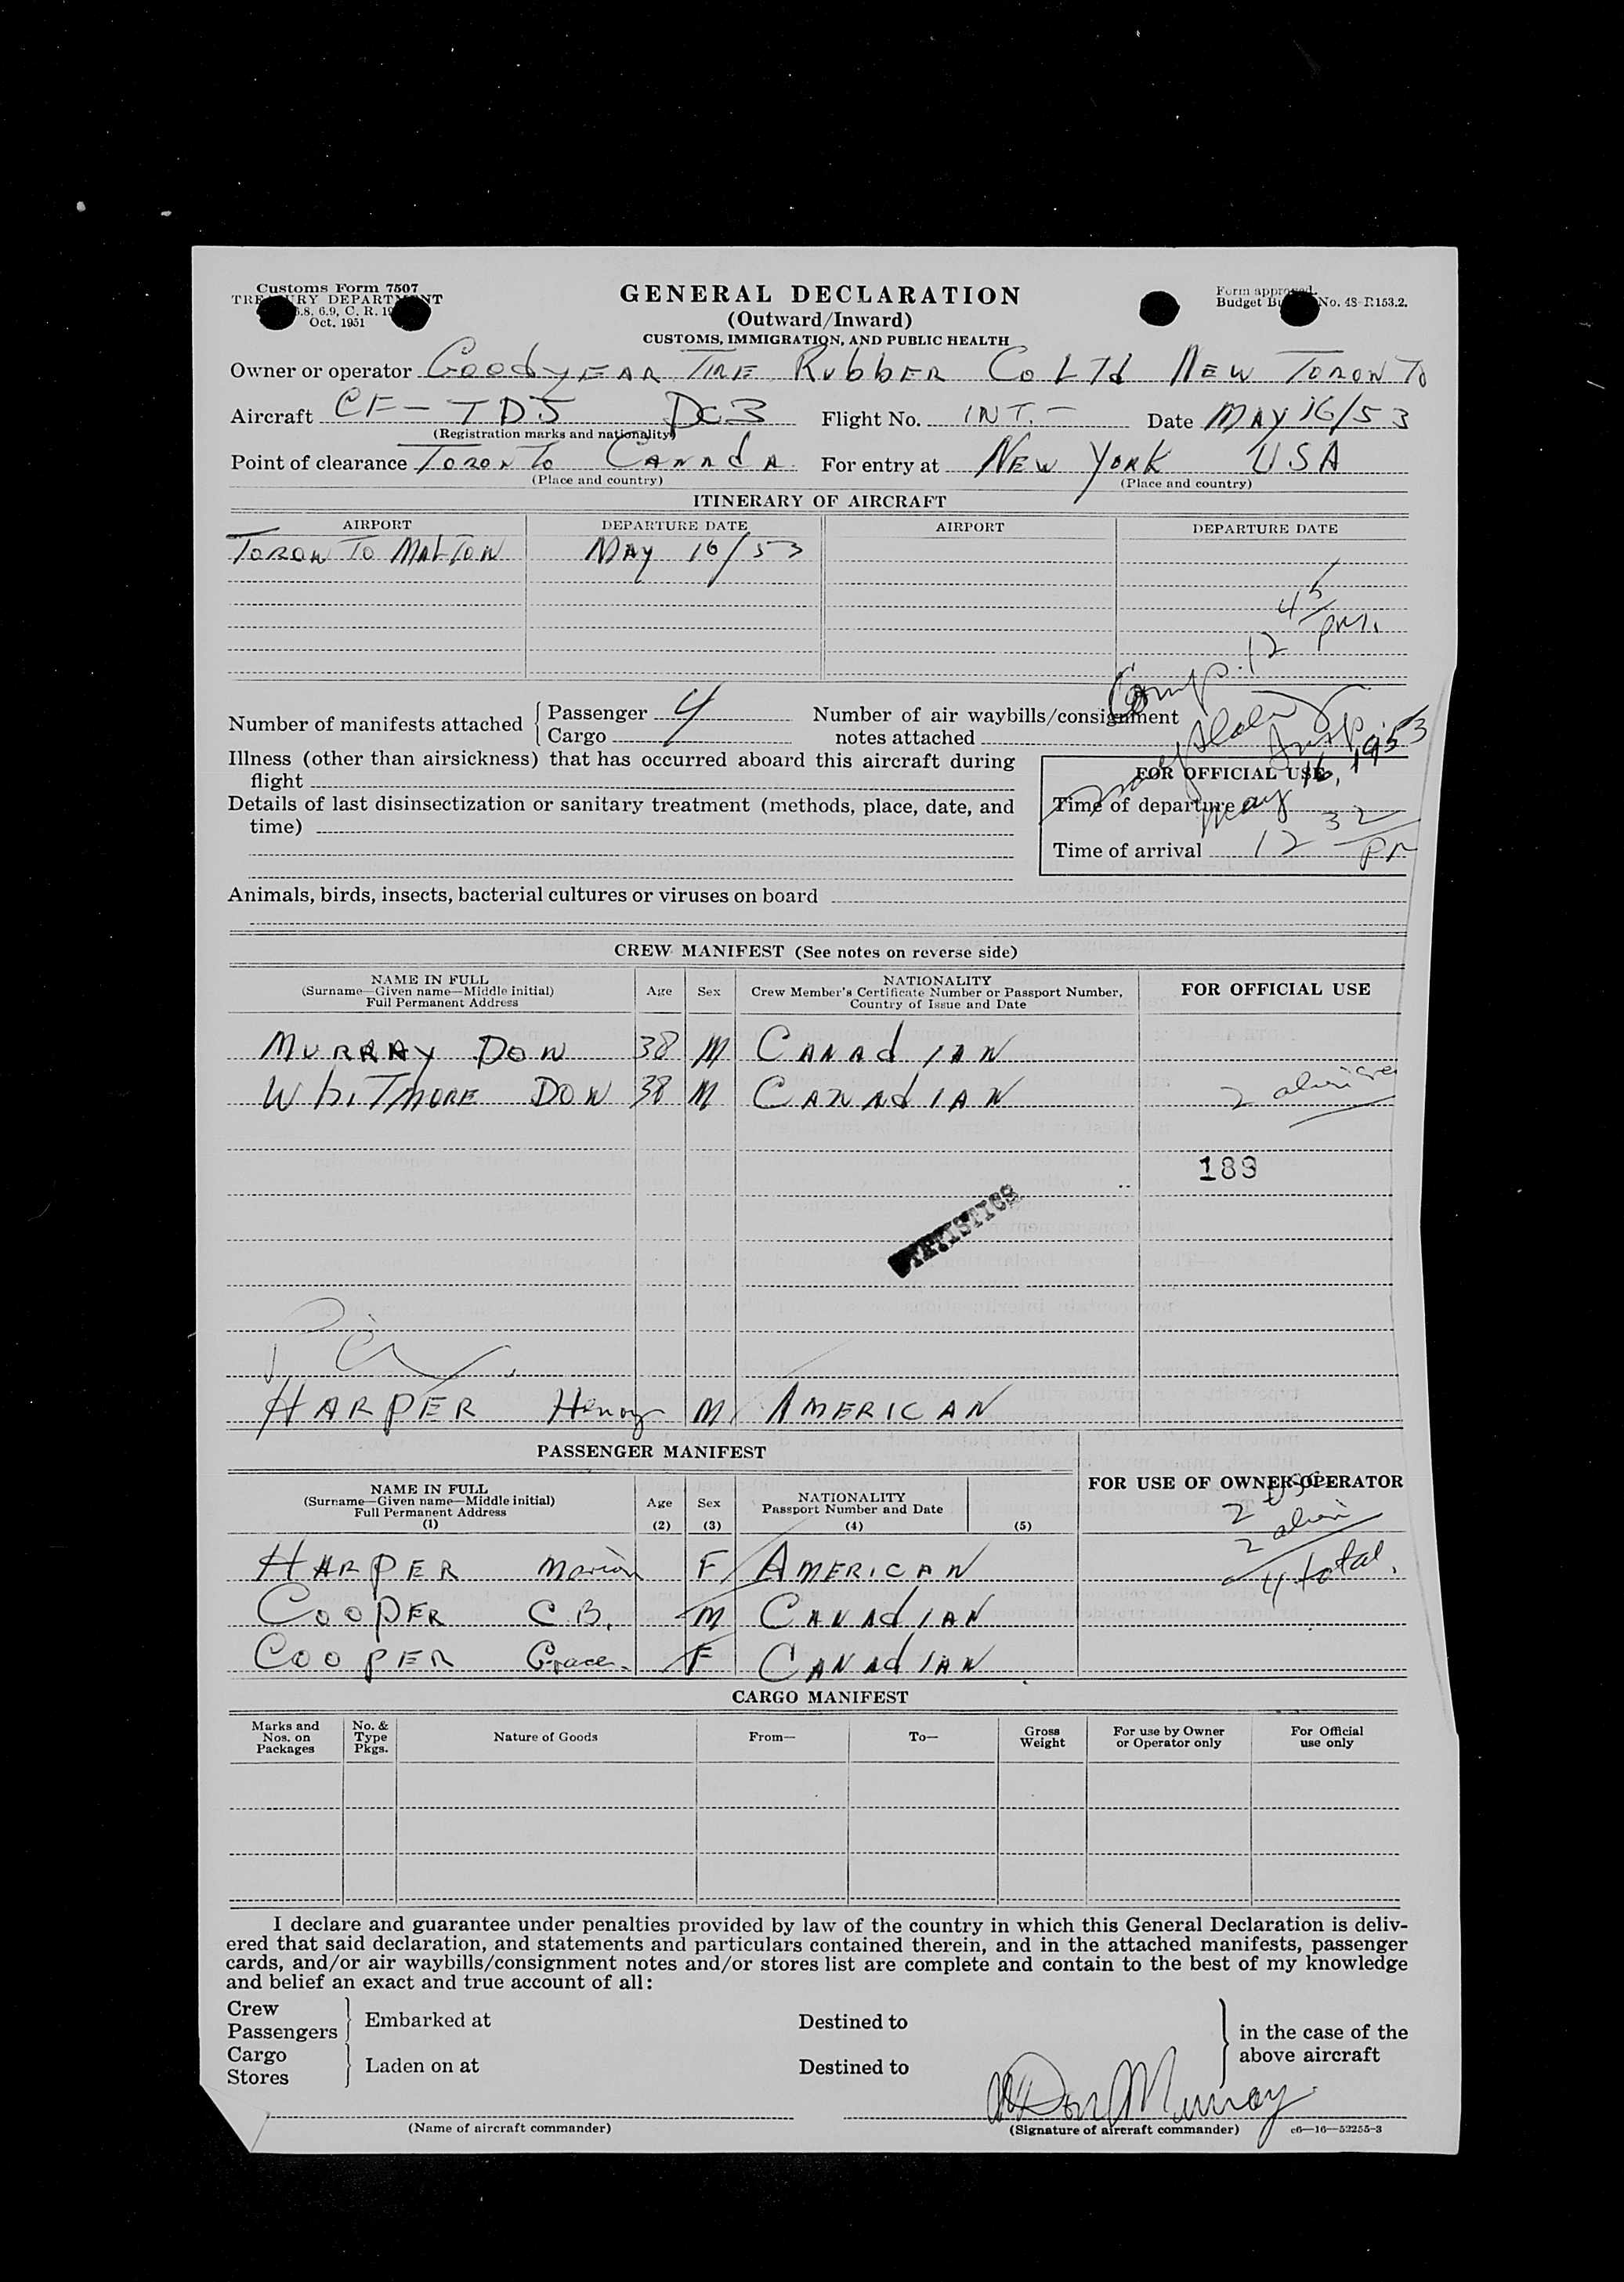 Customs Form 7507
TREASURY DEPARTMENT
6.8. 6.9, C. R. 19
Oct. 1951
GENERAL DECLARATION
(Outward/Inward)
CUSTOMS, IMMIGRATION, AND PUBLIC HEALTH
Form approved.
Budget Bu No. 48-R153.2.
Owner or operator GoodyEAR TIRE RubbER Co LTd NEW TORONTO
Aircraft CF-TDJ DC3 Flight No. INT.- Date MAY 16/53
(Registration marks and nationality)
Point of clearance TORONTO CANAdA. For entry at NEW YORK USA
(Place and country) (Place and country)
ITINERARY OF AIRCRAFT
AIRPORT DEPARTURE DATE AIRPORT DEPARTURE DATE
TORONTO MALTON MAY 16/53
Comp. 12 45 pm.
Number of manifests attached Passenger 4
Cargo
Number of air waybills/consignment
notes attached
Insp.
Illness (other than airsickness) that has occurred aboard this aircraft during
flight
Details of last disinsectization or sanitary treatment (methods, place, date, and
time)
FOR OFFICIAL USE
May 16, 1953
Time of departure
Time of arrival 12 32 pm
Animals, birds, insects, bacterial cultures or viruses on board
CREW MANIFEST (See notes on reverse side)
NAME IN FULL
(Surname—Given name—Middle initial)
Full Permanent Address
Age Sex
NATIONALITY
Crew Member's Certificate Number or Passport Number,
Country of Issue and Date
FOR OFFICIAL USE
MURRAY DON 38 M CANAdIAN
WhITMORE DON 38 M CANAdIAN 2 alien crew
189
STATISTICS
HARPER Henry M AMERICAN
PASSENGER MANIFEST
NAME IN FULL
(Surname—Given name—Middle initial)
Full Permanent Address
(1)
Age
(2)
Sex
(3)
NATIONALITY
Passport Number and Date
(4) (5)
FOR USE OF OWNER-OPERATOR
2 USC
2 alien
4 total.
HARPER Marion F AMERICAN
COOPER C.B. M CANAdIAN
COOPER Grace. F CANAdIAN
CARGO MANIFEST
Marks and
Nos. on
Packages
No. &
Type
Pkgs.
Nature of Goods From— To—
Gross
Weight
For use by Owner
or Operator only
For Official
use only
I declare and guarantee under penalties provided by law of the country in which this General Declaration is deliv-
ered that said declaration, and statements and particulars contained therein, and in the attached manifests, passenger
cards, and/or air waybills/consignment notes and/or stores list are complete and contain to the best of my knowledge
and belief an exact and true account of all:
Crew
Passengers
Embarked at Destined to
Cargo
Stores
Laden on at Destined to
in the case of the
above aircraft
Don Murray
(Name of aircraft commander) (Signature of aircraft commander) c6—16—52255-3